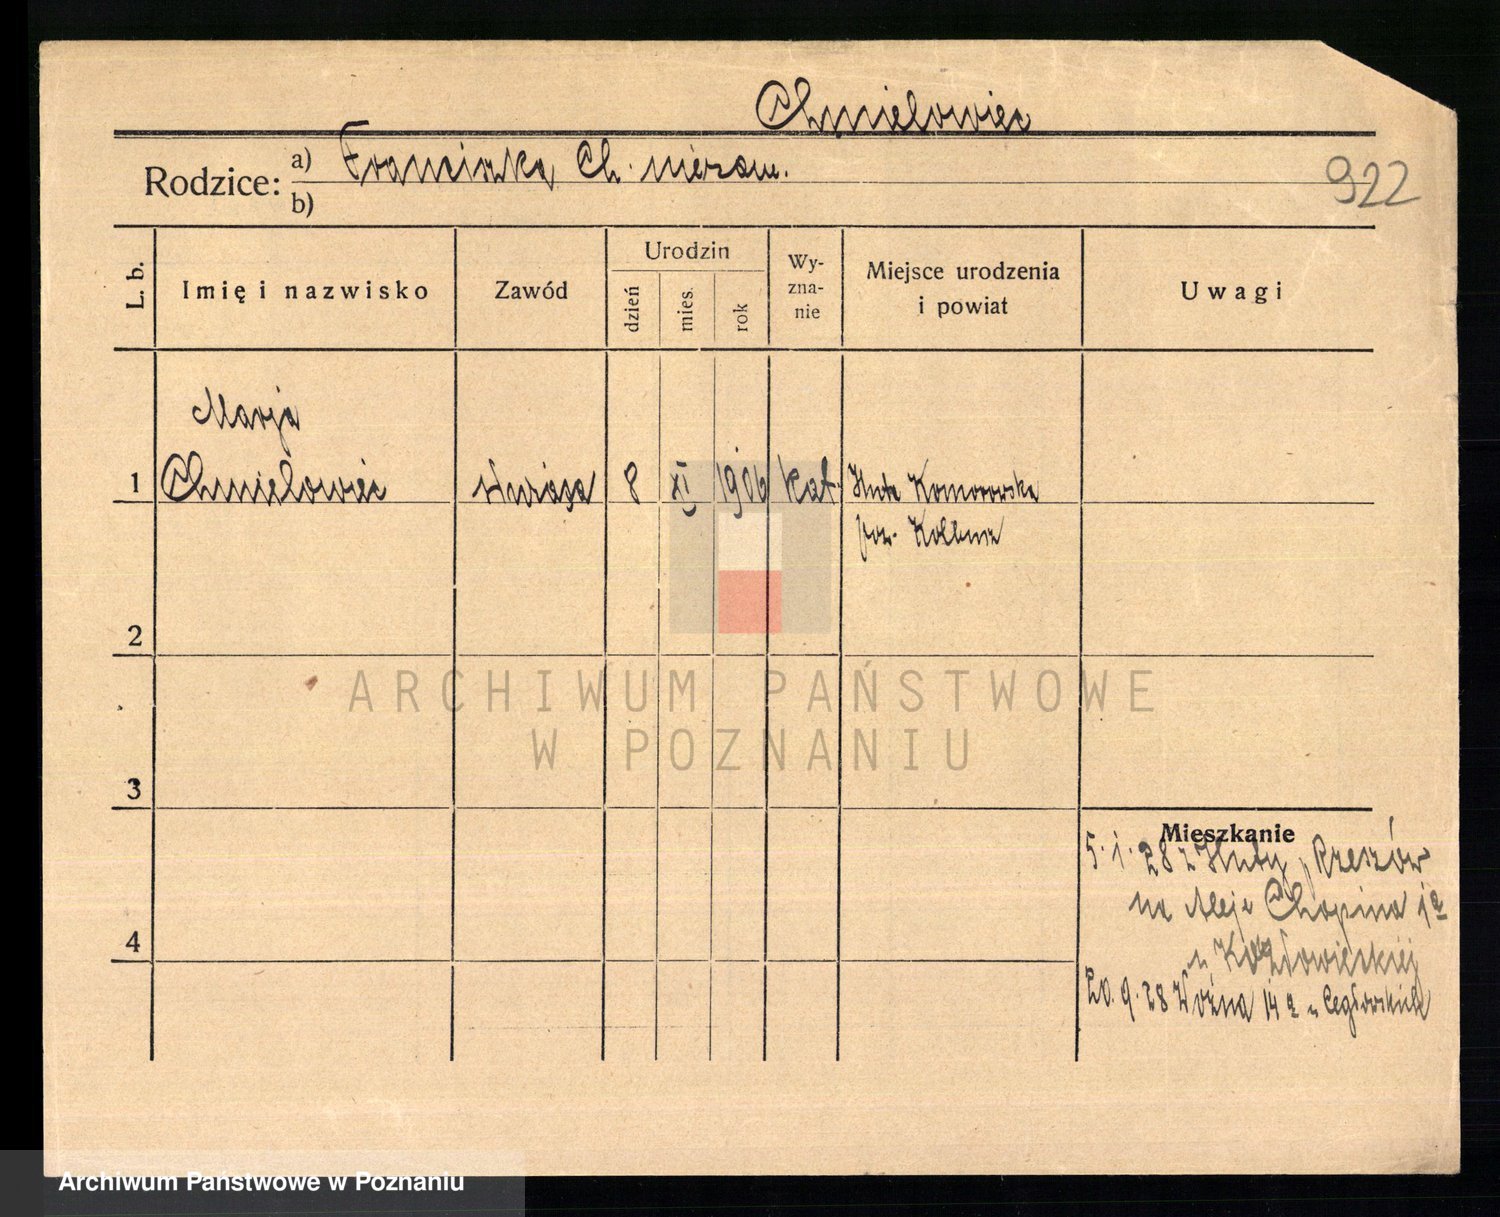 Chmielowiec
Rodzice: a) Franciszka Ch. niezam.
b)
922
L. b.
Imię i nazwisko
Zawód
Urodzin
dzień
mies.
rok
Wy-
zna-
nie
Miejsce urodzenia
i powiat
Uwagi
Marja
1 Chmielowiec służąca 8 XI 1906 kat. Huta Komorowska
pow. Kolbusz
2
3
4
Mieszkanie
5.1.28 z Huty, Rzeszów
na Aleje Chopina 1a
u
20.9.28 Woźna 14a u Cegłowskich
ARCHIWUM PAŃSTWOWE
W POZNANIU
Archiwum Państwowe w Poznaniu